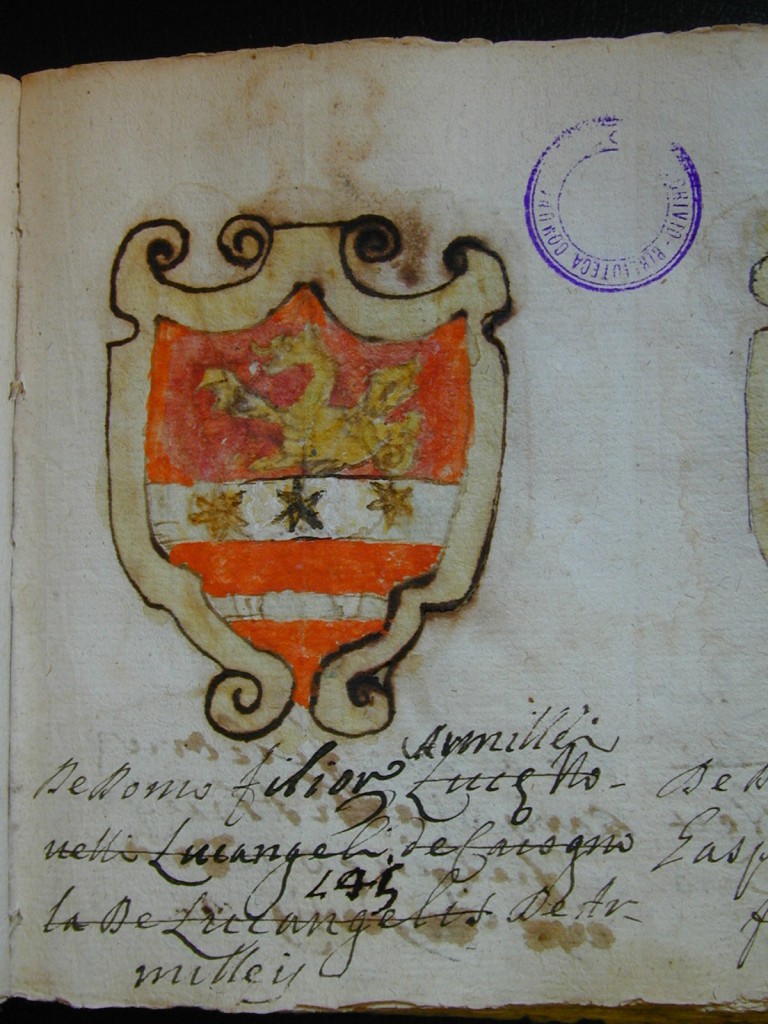 ARCHIVIO - BIBLIOTECA CON
Armillei
De Domo filior Luce No-
uelli Lucangeli, de
145
la De Lucangelis De Ar-
milleis
De D
Gasp
f